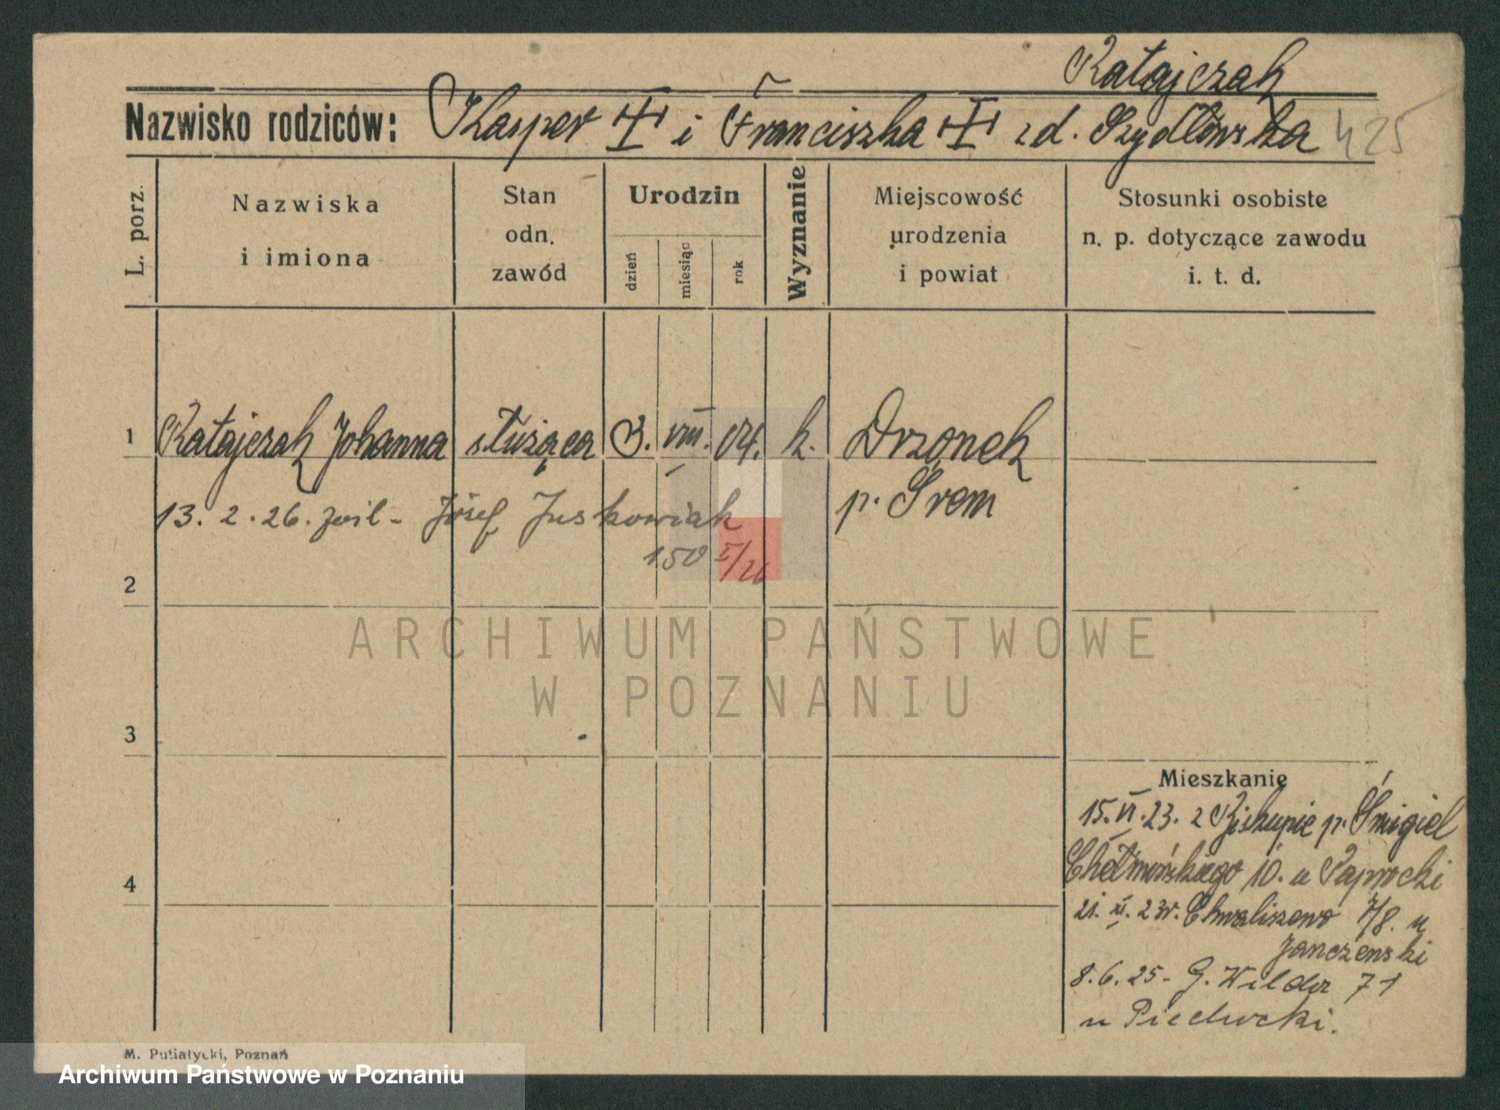 Ratajczak
Nazwisko rodziców: Kasper ‡ i Franciszka ‡ zd. Szydłowska 425
L. porz.
Nazwiska i imiona
Stan odn. zawód
Urodzin
dzień
miesiąc
rok
Wyznanie
Miejscowość urodzenia i powiat
Stosunki osobiste n. p. dotyczące zawodu i. t. d.
1 Ratajczak Johanna służąca 3. VIII. 04. k. Drzonek
p. Śrem
13. 2. 26. zvil - Józef Juskowiak
150 I/26
2
3
4
ARCHIWUM PAŃSTWOWE
W POZNANIU
Mieszkanie
15. VI. 23. z Biskupie p. Śmigiel
Chełmońskiego 10. u Paprocki
21. XI. 23r. Chwaliszewo 7/8. u
Janczewski
8. 6. 25 - G. Wilda 71
u Piechocki.
M. Putiatycki, Poznań
Archiwum Państwowe w Poznaniu